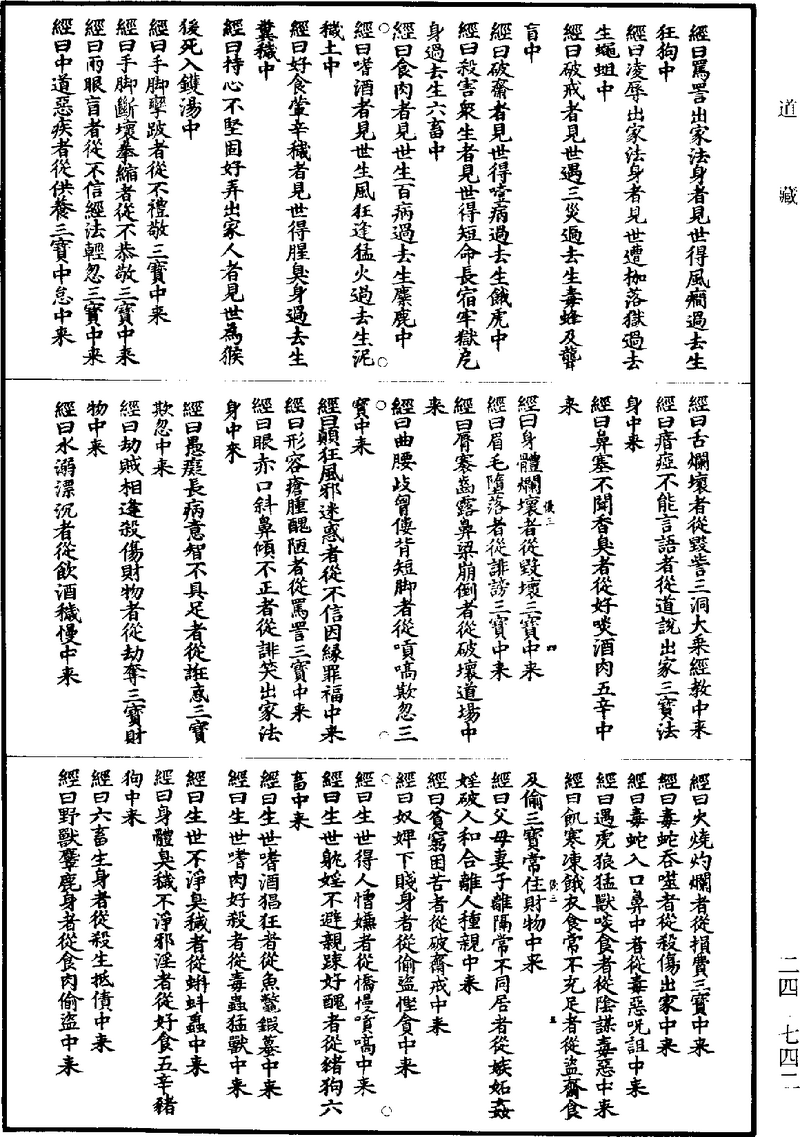 道藏
經曰罵詈出家法身者見世得風癇過去生
狂狗中
經曰凌辱出家法身者見世遭枷落獄過去
生蠅蛆中
經曰破戒者見世遇三災過去生毒蜂及聾
盲中
經曰破齋者見世得噎病過去生餓虎中
經曰殺害衆生者見世得短命長宿牢獄危
身過去生六畜中
經曰食肉者見世生百病過去生麋鹿中
經曰嗜酒者見世生風狂逢猛火過去生泥
穢土中
經曰好食葷辛穢者見世得腥臭身過去生
糞穢中
經曰持心不堅固好弄出家人者見世為猴
後死入鑊湯中
經曰手脚攣跛者從不禮敬三寶中来
經曰手脚斷壞拳縮者從不恭敬三寶中来
經曰兩眼盲者從不信經法輕忽三寶中来
經曰中道惡疾者從供養三寶中怠中来
經曰舌爛壞者從毀訾三洞大乘經教中来
經曰瘖瘂不能言語者從道說出家三寶法
身中来
經曰鼻塞不聞香臭者從好啖酒肉五辛中
来
經曰身體爛壞者從毀壞三寶中来
儀三 四
經曰眉毛墮落者從誹謗三寶中来
經曰脣褰齒露鼻梁崩倒者從破壞道場中
来
經曰曲腰歧胷僂背短脚者從嗔嗃欺忽三
寶中来
經曰顛狂風邪迷惑者從不信因緣罪福中来
經曰形容瘡腫醜陋者從罵詈三寶中来
經曰眼赤口斜鼻傾不正者從誹笑出家法
身中來
經曰愚癡長病意智不具足者從誑惑三寶
欺忽中来
經曰劫賊相逢殺傷財物者從劫奪三寶財
物中来
經曰水溺漂沉者從飲酒穢慢中来
經曰火燒灼爛者從損費三寶中来
經曰毒蛇吞噬者從殺傷出家中来
經曰毒蛇入口鼻中者從毒惡呪詛中来
經曰遇虎狼猛獸啖食者從陰謀毒惡中来
經曰飢寒凍餓衣食常不充足者從盜齋食
及偷三寶常住財物中来
儀三 五
經曰父母妻子離隔常不同居者從嫉妬姦
婬破人和合離人種親中来
經曰貧窮困苦者從破齋戒中来
經曰奴婢下賤身者從偷盜慳貪中来
經曰生世得人憎嫌者從憍慢嗔嗃中来
經曰生世躭婬不避親踈好醜者從猪狗六
畜中来
經曰生世嗜酒猖狂者從魚鼈鍜蟇中来
經曰生世嗜肉好殺者從毒蟲猛獸中来
經曰生世不淨臭穢者從蝌蚪蟲中来
經曰身體臭穢不淨邪淫者從好食五辛豬
狗中来
經曰六畜生身者從殺生抵債中来
經曰野獸麞鹿身者從食肉偷盜中来
二四·七四二